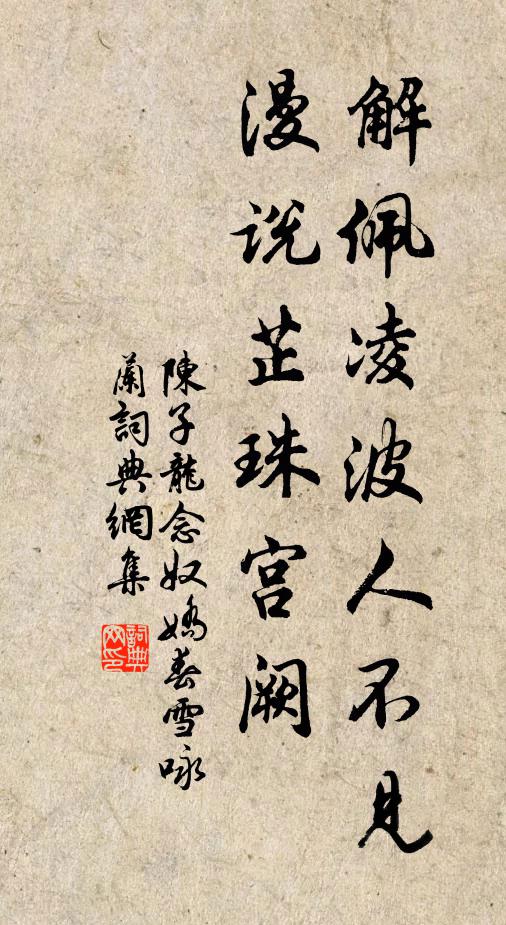 解佩凌波人不见
漫说芷珠宫阙
陳子龍念奴嬌春雪咏
蘭詞典網集
詞典网印